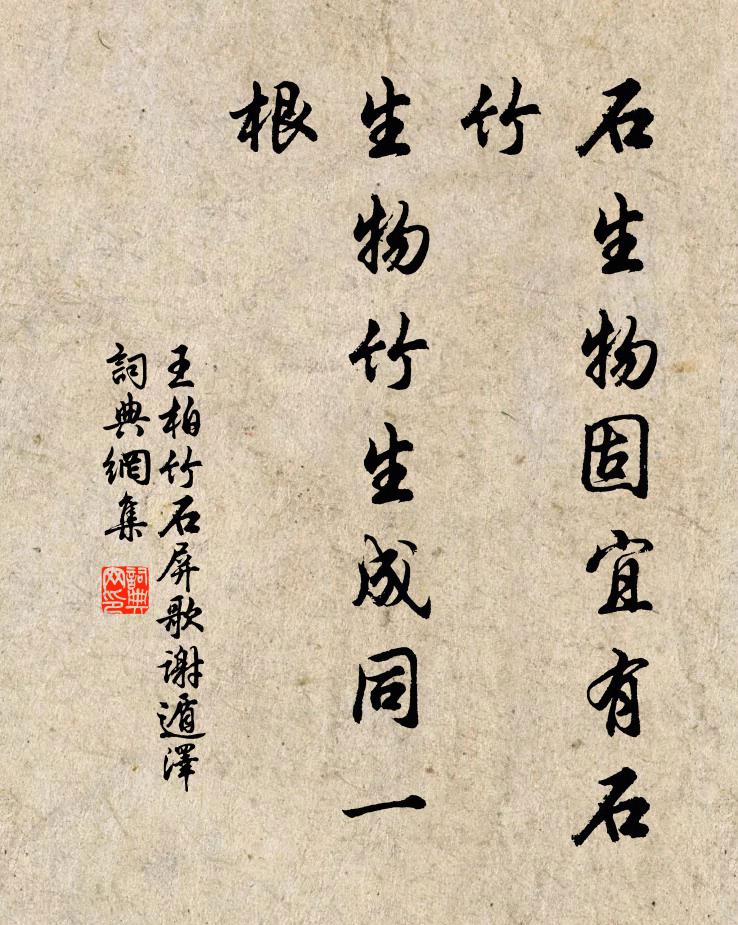 石生物固宜有石
竹
生物竹生成同一
根
王柏竹石屏歌謝遁澤
詞典網集
詞典網印